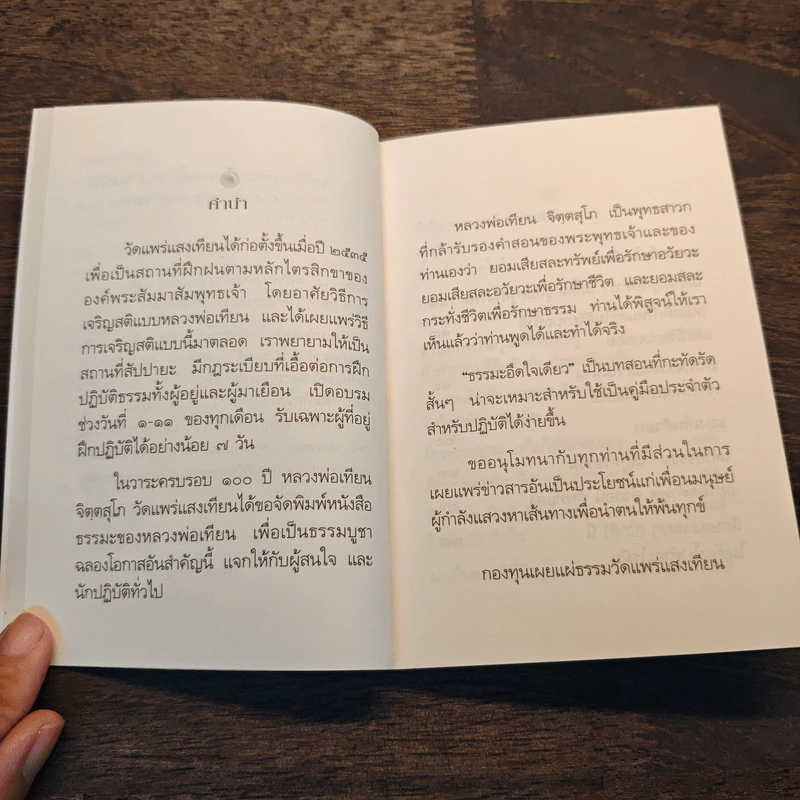 คำนำ
วัดแพร่แสงเทียนได้ก่อตั้งขึ้นเมื่อปี ๒๕๓๕
เพื่อเป็นสถานที่ฝึกฝนตามหลักไตรสิกขาของ
องค์พระสัมมาสัมพุทธเจ้า โดยอาศัยวิธีการ
เจริญสติแบบหลวงพ่อเทียน และได้เผยแพร่วิธี
การเจริญสติแบบนี้มาตลอด เราพยายามให้เป็น
สถานที่สัปปายะ มีกฎระเบียบที่เอื้อต่อการฝึก
ปฏิบัติธรรมทั้งผู้อยู่และผู้มาเยือน เปิดอบรม
ช่วงวันที่ ๑-๑๑ ของทุกเดือน รับเฉพาะผู้ที่อยู่
ฝึกปฏิบัติได้อย่างน้อย ๗ วัน
ในวาระครบรอบ ๑๐๐ ปี หลวงพ่อเทียน
จิตฺตสุโภ วัดแพร่แสงเทียนได้ขอจัดพิมพ์หนังสือ
ธรรมะของหลวงพ่อเทียน เพื่อเป็นธรรมบูชา
ฉลองโอกาสอันสำคัญนี้ แจกให้กับผู้สนใจ และ
นักปฏิบัติทั่วไป
หลวงพ่อเทียน จิตฺตสุโภ เป็นพุทธสาวก
ที่กล้ารับรองคำสอนของพระพุทธเจ้าและของ
ท่านเองว่า ยอมเสียสละทรัพย์เพื่อรักษาอวัยวะ
ยอมเสียสละอวัยวะเพื่อรักษาชีวิต และยอมสละ
กระทั่งชีวิตเพื่อรักษาธรรม ท่านได้พิสูจน์ให้เรา
เห็นแล้วว่าท่านพูดได้และทำได้จริง
"ธรรมะอึดใจเดียว" เป็นบทสอนที่กะทัดรัด
สั้นๆ น่าจะเหมาะสำหรับใช้เป็นคู่มือประจำตัว
สำหรับปฏิบัติได้ง่ายขึ้น
ขออนุโมทนากับทุกท่านที่มีส่วนในการ
เผยแพร่ข่าวสารอันเป็นประโยชน์แก่เพื่อนมนุษย์
ผู้กำลังแสวงหาเส้นทางเพื่อนำตนให้พ้นทุกข์
กองทุนเผยแผ่ธรรมวัดแพร่แสงเทียน